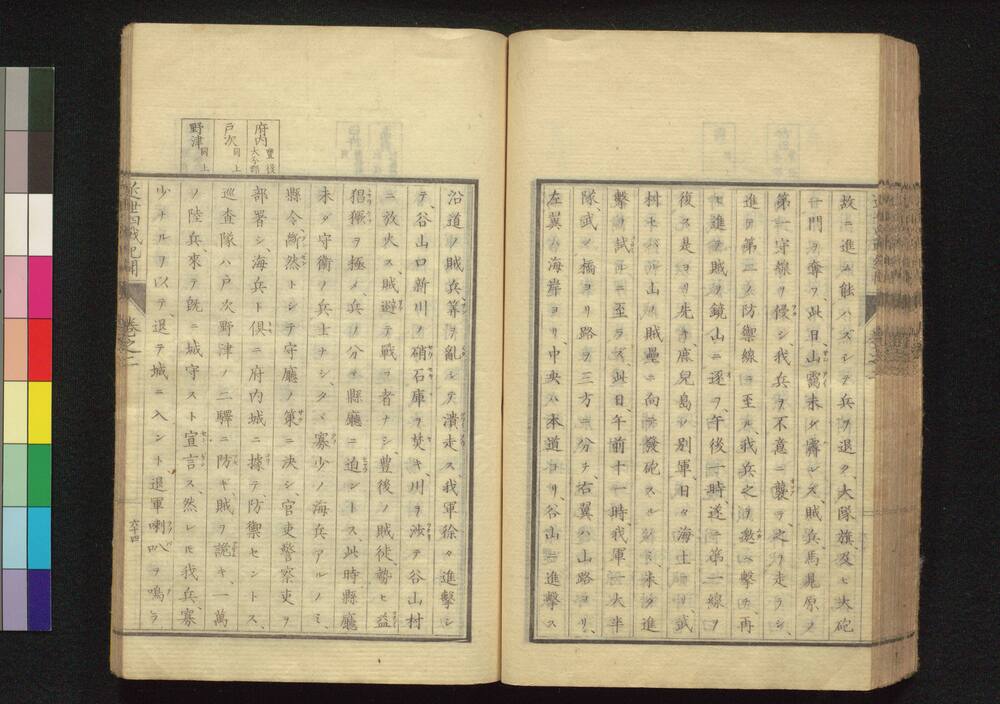 故ニ進ム能ハズシテ兵ヲ退ク、大隊旗、及ヒ大砲
一門ヲ奪フ、此日、山靄未ダ霽レズ、賊兵馬見原ノ
第一守線ヲ侵シ、我兵ヲ不意ニ襲フ、之ヲ走ラシ、
進テ第二ノ防禦線ニ至ル、我兵之ヲ邀ヘ撃チ、再
ヒ進テ賊ヲ鏡山ニ逐フ、午後一時遂ニ第一線ヲ
復ス、是ヨリ先キ、鹿兒島ノ別軍、日々海上ヨリ、武
村上ノ山ノ賊壘ニ向テ發砲スル、未ダ進
撃ヲ試ルニ至ラズ、此日、午前十一時、我軍一大半
隊、武ノ橋ヨリ路ヲ三方ニ分チ、右翼ハ山路ヨリ、
左翼ハ海岸ヨリ、中央ハ本道ヨリ、谷山ニ進撃ス
沿道ノ賊兵等ヲ亂シテ潰走ス、我軍徐々進撃シ
テ、谷山口新川ノ硝石庫ヲ焚キ、川ヲ渉テ谷山村
ニ放火ス、賊避テ戰フ者ナシ、豊後ノ賊徒、勢ヒ益
猖獗ヲ極メ、兵ヲ分チ、縣廳ニ迫ントス、此時、縣廳
未ダ守衛ノ兵士ナシ、タヾ寡少ノ海兵アルノミ、
縣令、斷然トシテ守廳ノ策ニ決シ、官吏警察吏ヲ
部署シ、海兵ト倶ニ府内城ニ據テ、防禦セントス、
巡查隊ハ戸次野津ノ二驛ニ防ギ、賊ヲ詭キ、一萬
ノ陸兵、來テ既ニ城守スト宣言ス、然レ𪜈我兵、寡
少ナルヲ以テ、退テ城ニ入ント、退軍喇叭ヲ鳴ラ
府内 豐後大分郡
戸次 同上
野津 同上
卷之二
六十四